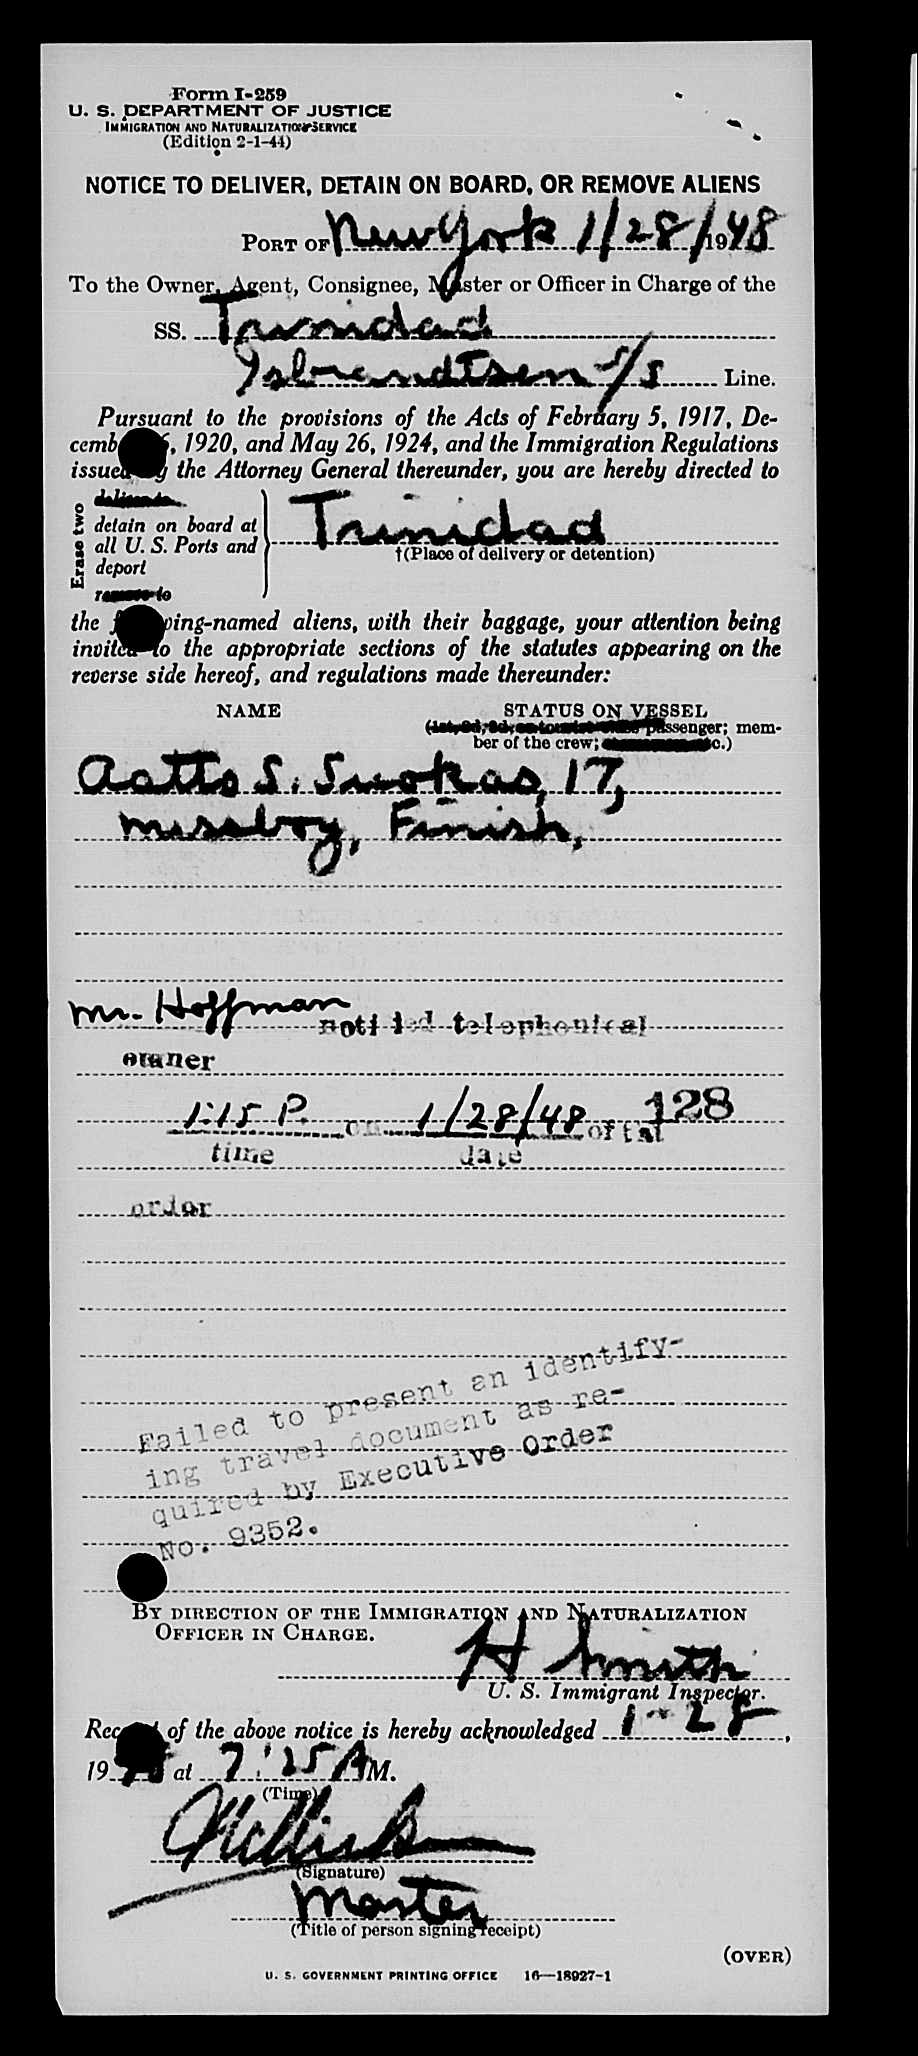 Form I-259
U. S. DEPARTMENT OF JUSTICE
IMMIGRATION AND NATURALIZATION SERVICE
(Edition 2-1-44)
NOTICE TO DELIVER, DETAIN ON BOARD, OR REMOVE ALIENS
PORT OF New York 1/28/1948
To the Owner, Agent, Consignee, Master or Officer in Charge of the
SS. Trinidad
Isbrandtsen S/S Line.
Pursuant to the provisions of the Acts of February 5, 1917, De-
cemb 6, 1920, and May 26, 1924, and the Immigration Regulations
issued by the Attorney General thereunder, you are hereby directed to
Erase two
deliver to
detain on board at
all U. S. Ports and
deport
remove to
Trinidad
†(Place of delivery or detention)
the f wing-named aliens, with their baggage, your attention being
invited to the appropriate sections of the statutes appearing on the
reverse side hereof, and regulations made thereunder:
NAME STATUS ON VESSEL
passenger; mem-
ber of the crew; c.)
Aatto S. Suokas, 17,
messboy, Finish,
Mr. Hoffman notified telephonical
owner
1:15 P. on 1/28/48 of tat 128
time date
order
Failed to present an identify-
ing travel document as re-
quired by Executive Order
No. 9352.
BY DIRECTION OF THE IMMIGRATION AND NATURALIZATION
OFFICER IN CHARGE.
H Smith
U. S. Immigrant Inspector.
Rec t of the above notice is hereby acknowledged 1-28,
1948 at 7:25 AM.
(Time)
(Signature)
Master
(Title of person signing receipt)
(OVER)
U. S. GOVERNMENT PRINTING OFFICE 16—18927-1